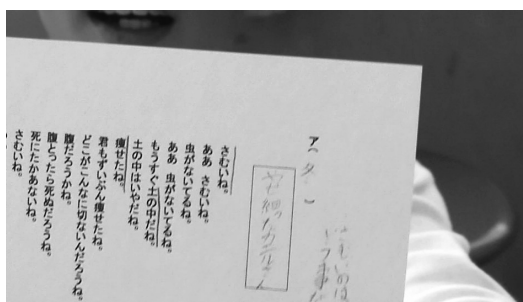 やせ細ったカエル
さむいね。
ああ さむいね。
虫がないてるね。
ああ 虫がないてるね。
もうすぐ土の中だね。
土の中はいやだね。
痩せたね。
君もずいぶん痩せたね。
どこがこんなに切ないんだろうね。
腹だろうかね。
腹とったら死ぬだろうね。
死にたかあないね。
さむいね。